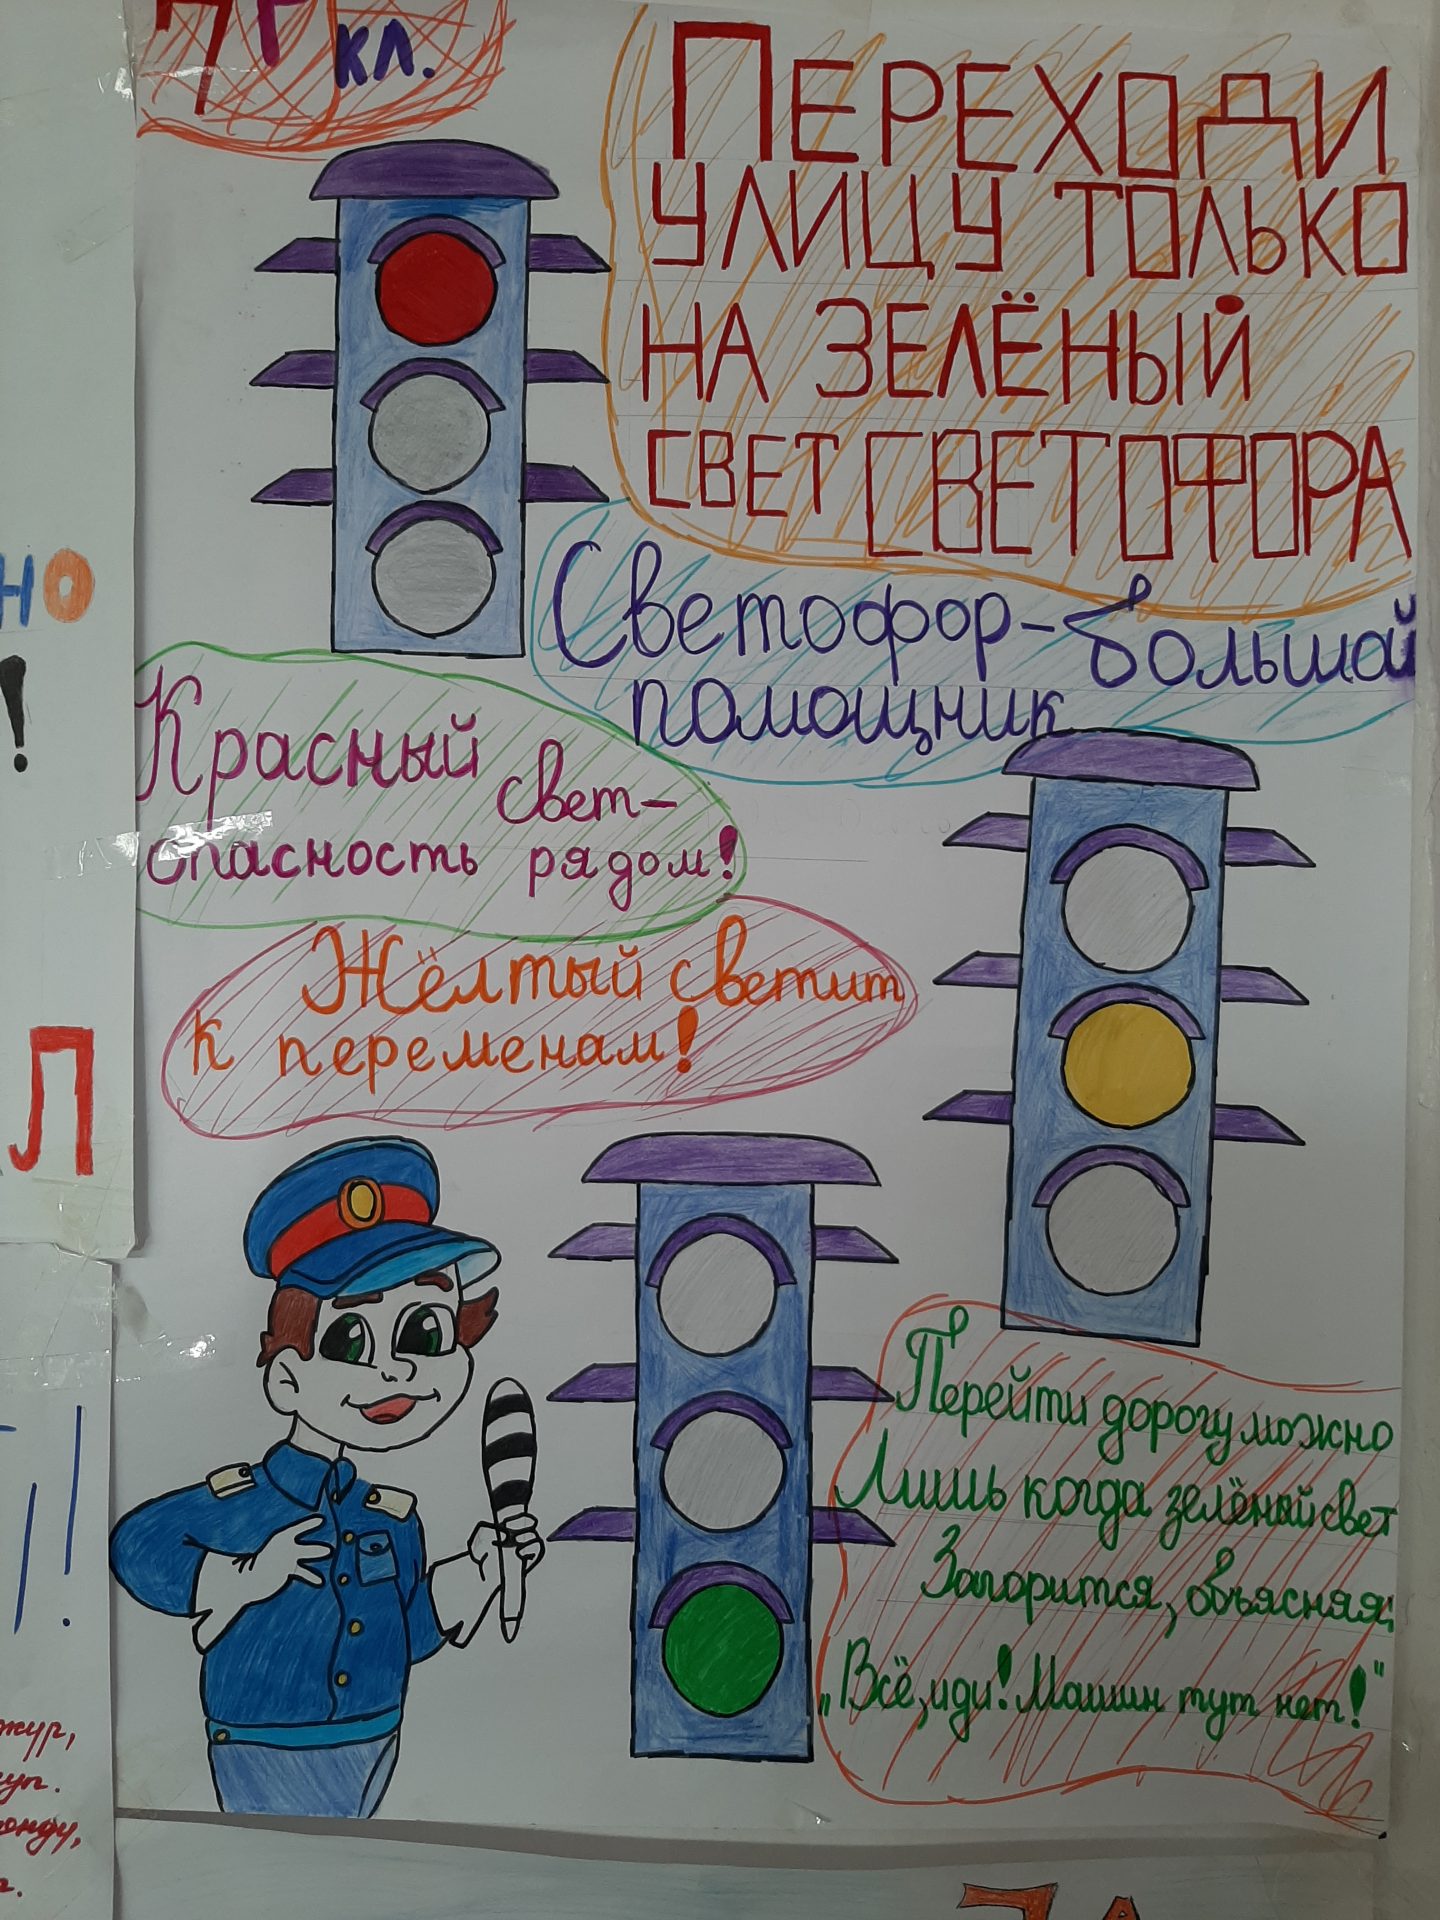 7Г кл.
ПЕРЕХОДИ
УЛИЦУ ТОЛЬКО
НА ЗЕЛЁНЫЙ
СВЕТ СВЕТОФОРА
Светофор - большой
помощник
Красный свет -
опасность рядом!
Жёлтый светит
к переменам!
Перейти дорогу можно
Лишь когда зелёный свет
Загорится, объясняя:
„Всё, иди! Машин тут нет!"
но
!
Л
!